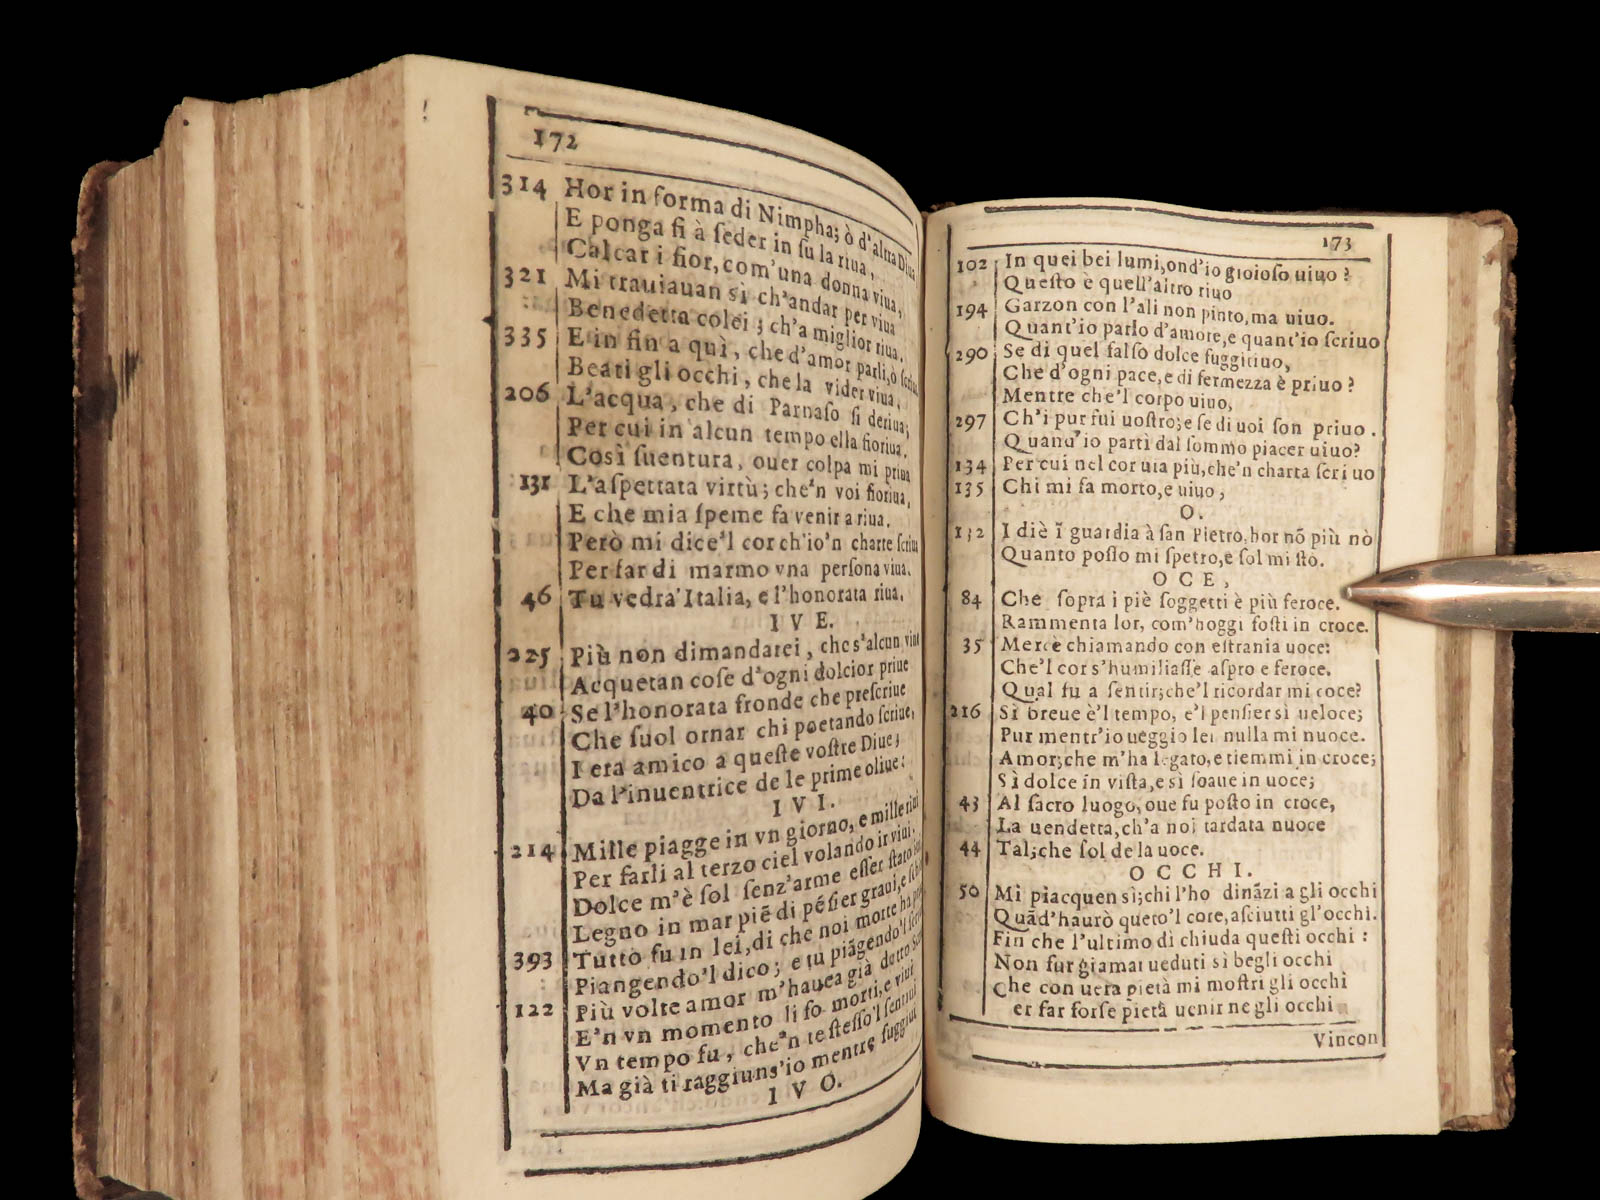 172
314 Hor in forma di Nimpha; ò d'altra Diua
E ponga ſi à ſeder in ſu la riua,
Calcar i fior, com'una donna viua,
321 Mi trauiauan sì ch'andar per viua
Benedetta colei; ch'a miglior riua,
335 E in fin a quì, che d'amor parli, ò ſcriua
Beati gli occhi, che la vider viua,
206 L'acqua, che di Parnaſo ſi deriua;
Per cui in alcun tempo ella fioriua,
Così ſuentura, ouer colpa mi priua
131 L'aſpettata virtù; che'n voi fioriua,
E che mia ſpeme fa venir a riua.
Però mi dice'l cor ch'io'n charte ſcriua
Per far di marmo vna perſona viua.
46 Tu vedra' Italia, e l'honorata riua.
I V E.
225 Più non dimandarei, che s'alcun viue
Acquetan coſe d'ogni dolcior priue
40 Se l'honorata fronde che preſcriue
Che ſuol ornar chi poetando ſcriue,
I era amico a queſte voſtre Diue;
Da l'inuentrice de le prime oliue:
I V I.
214 Mille piagge in vn giorno, e mille riui
Per farli al terzo ciel volando ir viui.
Dolce m'è ſol ſenz'arme eſſer ſtato
Legno in mar piē di péſier graui, e
393 Tutto fu in lei, di che noi morte ha
Piangendo'l dico; e tu piāgendo'l
122 Più volte amor m'hauea già detto
E'n vn momento li fo morti, e viui
Vn tempo fu, che'n te ſteſſo'l ſentiui
Ma già ti raggiuns'io mentre fuggiui
I V O.
173
102 In quei bei lumi, ond'io gioioſo uiuo?
Queſto è quell'altro riuo
194 Garzon con l'ali non pinto, ma uiuo.
Quant'io parlo d'amore, e quant'io ſcriuo
290 Se di quel falſo dolce fuggitiuo,
Che d'ogni pace, e di fermezza è priuo?
Mentre che'l corpo uiuo,
297 Ch'i pur fui uoſtro; e ſe di uoi ſon priuo.
Quand'io partì dal ſommo piacer uiuo?
134 Per cui nel cor uia più, che'n charta ſcriuo
135 Chi mi fa morto, e uiuo,
O.
132 I diè ī guardia à ſan Pietro, hor nō più nò
Quanto poſſo mi ſpetro, e ſol mi ſto.
O C E,
84 Che ſopra i piè ſoggetti è più feroce.
Rammenta lor, com'hoggi foſti in croce.
35 Mercè chiamando con eſtrania uoce:
Che'l cor s'humiliaſſe aſpro e feroce.
Qual fu a ſentir; che'l ricordar mi coce?
216 Sì breue è'l tempo, e'l penſier sì ueloce;
Pur mentr'io ueggio lei nulla mi nuoce.
Amor; che m'ha legato, e tiemmi in croce;
Sì dolce in viſta, e sì ſoaue in uoce;
43 Al ſacro luogo, oue fu poſto in croce,
La uendetta, ch'a noi tardata nuoce
44 Tal; che ſol de la uoce.
O C C H I.
50 Mi piacquen sì; ch'i l'ho dināzi a gli occhi
Quād'haurò queto'l core, aſciutti gl'occhi.
Fin che l'ultimo dì chiuda queſti occhi:
Non fur giamai ueduti sì begli occhi
Che con uera pietà mi moſtri gli occhi
er far forſe pietà uenir ne gli occhi
Vincon